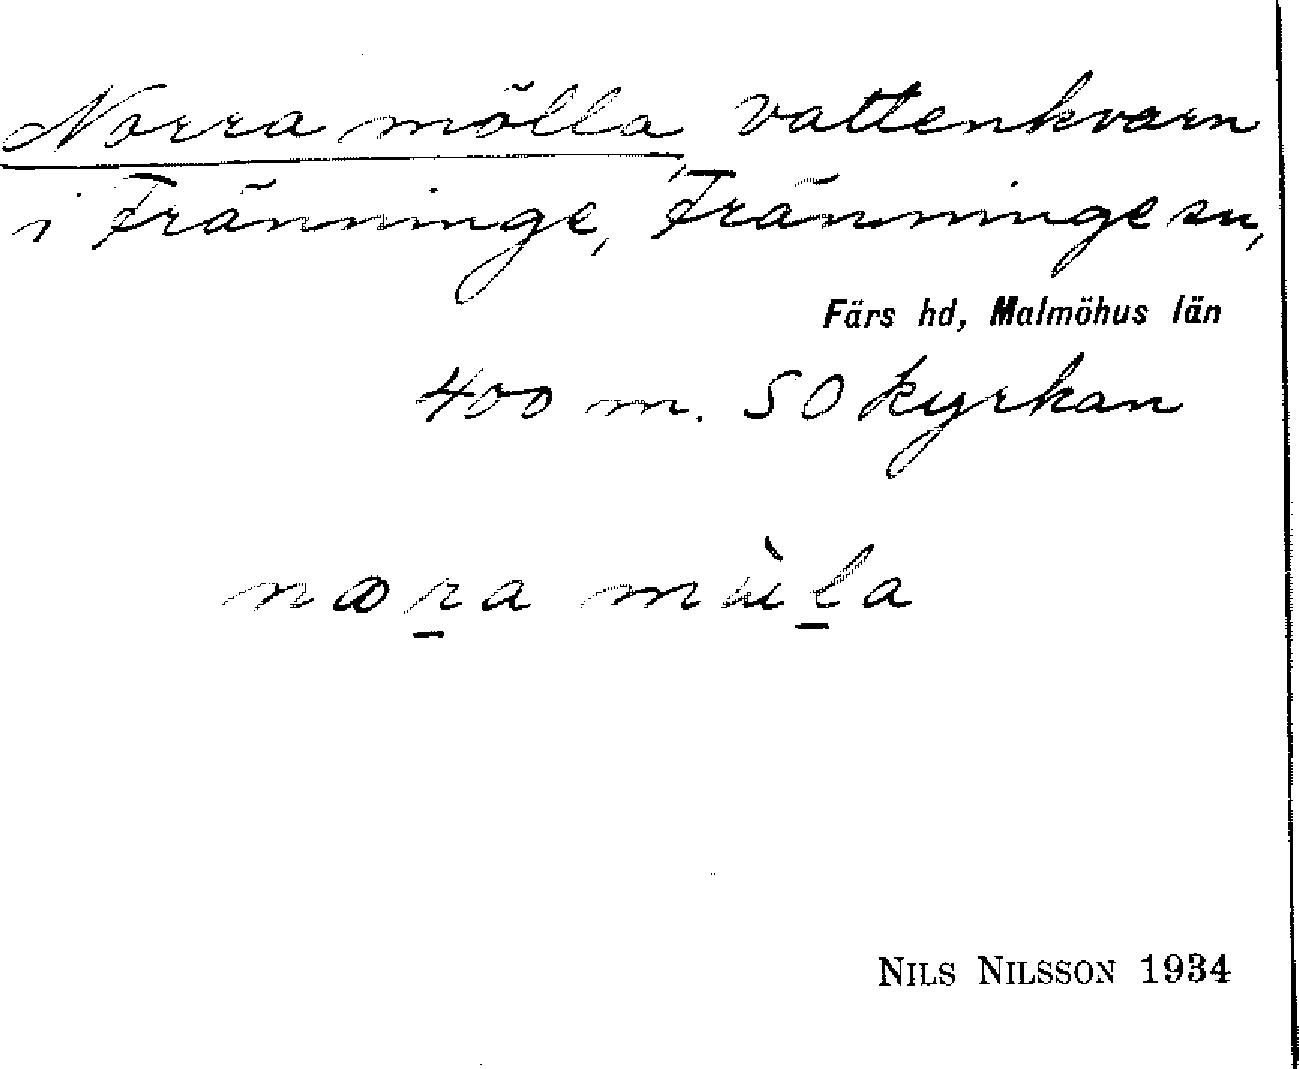 Norra mölla, vattenkvarn
i Fränninge, Fränninge sn,
Färs hd, Malmöhus län
400 m. SO kyrkan
Nils Nilsson 1934